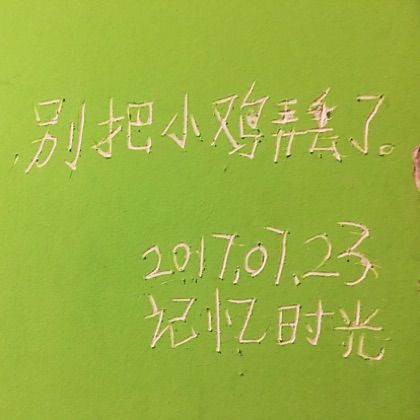 别把小鸡弄丢了。
2017.07.23
记忆时光